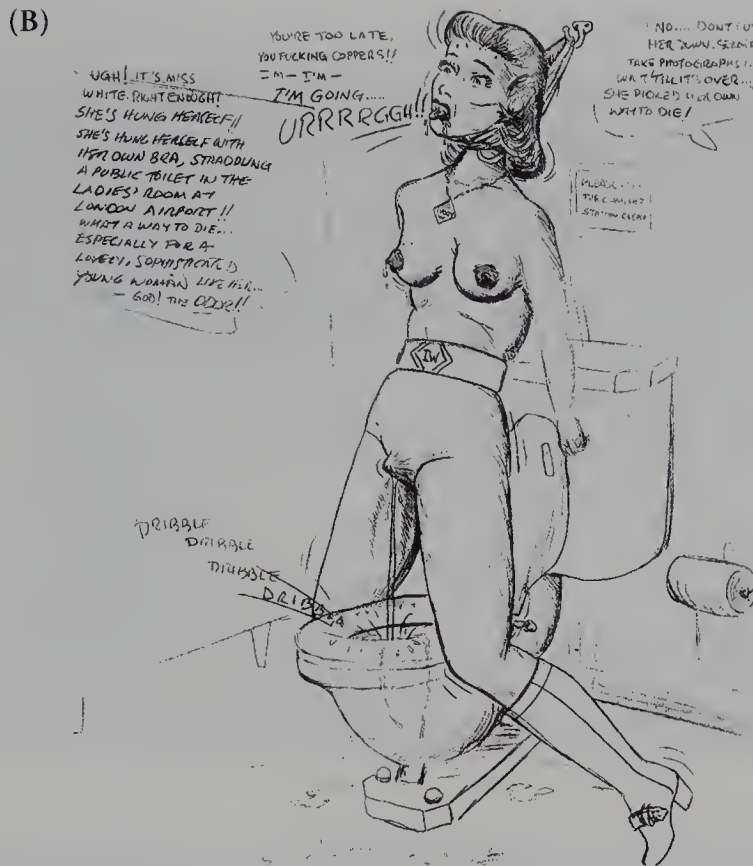 (B)
UGH! IT'S MISS
WHITE. RIGHT ENOUGH!
SHE'S HUNG HERSELF!!
SHE'S HUNG HERSELF WITH
HER OWN BRA, STRADDLING
A PUBLIC TOILET IN THE
LADIES' ROOM AT
LONDON AIRPORT!!
WHAT A WAY TO DIE...
ESPECIALLY FOR A
LOVELY, SOPHISTICATED
YOUNG WOMAN LIKE HER...
— GOD! THE ODOR!!
YOU'RE TOO LATE,
YOU FUCKING COPPERS!!
I'M — I'M —
I'M GOING.....
URRRRGGH!!
NO.... DON'T CUT
HER DOWN.
TAKE PHOTOGRAPHS
WAIT 'TILL IT'S OVER...
SHE PICKED HER OWN
WAY TO DIE!
PLEASE
IW
DRIBBLE
DRIBBLE
DRIBBLE
DRIBBLE